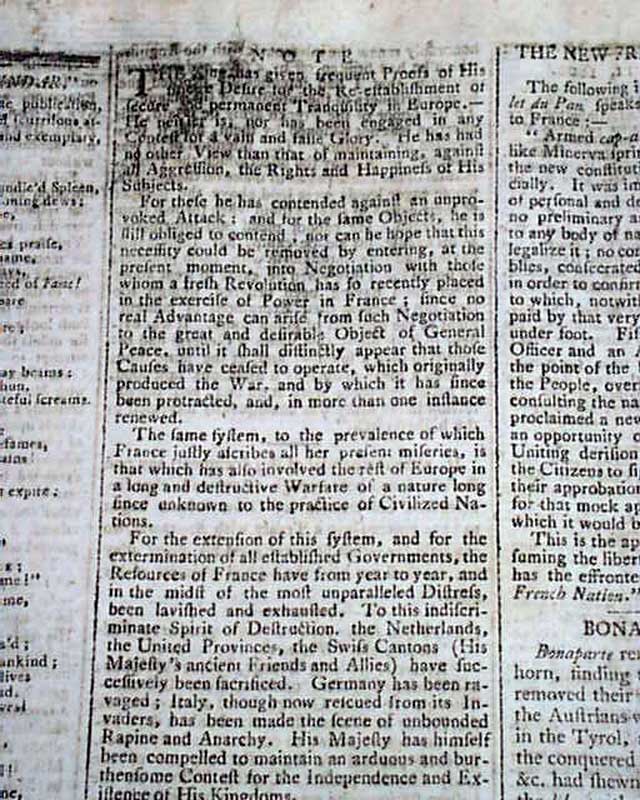 NOTE
THE King has given frequent Proofs of His
sincere Desire for the Re-establishment of
secure and permanent Tranquility in Europe.—
He neither is, nor has been engaged in any
Contest for a vain and false Glory. He has had
no other View than that of maintaining, against
all Aggression, the Rights and Happiness of His
Subjects.
For these he has contended against an unpro-
voked Attack; and for the same Objects, he is
still obliged to contend; nor can he hope that this
necessity could be removed by entering, at the
present moment, into Negotiation with those
whom a fresh Revolution has so recently placed
in the exercise of Power in France; since no
real Advantage can arise from such Negotiation
to the great and desirable Object of General
Peace, until it shall distinctly appear that those
Causes have ceased to operate, which originally
produced the War, and by which it has since
been protracted, and, in more than one instance
renewed.
The same system, to the prevalence of which
France justly ascribes all her present miseries, is
that which has also involved the rest of Europe in
a long and destructive Warfare of a nature long
since unknown to the practice of Civilized Na-
tions.
For the extension of this system, and for the
extermination of all established Governments, the
Resources of France have from year to year, and
in the midst of the most unparalleled Distress,
been lavished and exhausted. To this indiscri-
minate Spirit of Destruction, the Netherlands,
the United Provinces, the Swiss Cantons (His
Majesty's ancient Friends and Allies) have suc-
cessively been sacrificed. Germany has been ra-
vaged; Italy, though now rescued from its In-
vaders, has been made the scene of unbounded
Rapine and Anarchy. His Majesty has himself
been compelled to maintain an arduous and bur-
thensome Contest for the Independence and Ex-
istence of His Kingdoms.
THE NEW FR
The following i
let du Pan speak
to France:—
"Armed cap-a
like Minerva spri
the new constitut
cially. It was im
of personal and de
no preliminary a
to any body of na
legalize it; no co
blics, consecrated
in order to confir
to which, notwi
paid by that very
under foot. Fif
Officer and an A
the point of the
the People, over
consulting the na
proclaimed a new
an opportunity o
Uniting derision
the Citizens to si
their approbation
for that mock ap
which it would b
This is the ap
suming the libert
has the effronte
French Nation."
BONA
Bonaparte re
horn, finding
removed their
the Austrians
in the Tyrol,
the conquered
&c. had shewn